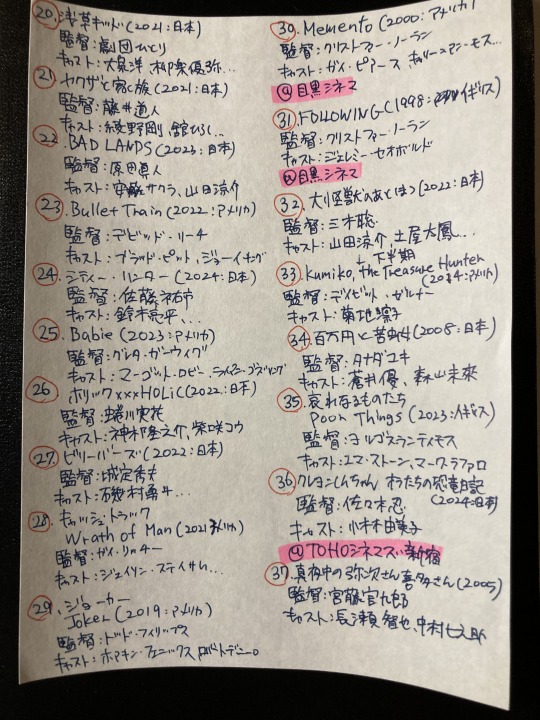 20. 浅草キッド(2021:日本)
監督:劇団ひとり
キャスト:大泉洋, 柳楽優弥…
21. ヤクザと家族(2021:日本)
監督:藤井道人
キャスト:綾野剛, 舘ひろし…
22. BAD LANDS(2023:日本)
監督:原田眞人
キャスト:安藤サクラ、山田涼介
23. Bullet Train(2022:アメリカ)
監督:デビッド・リーチ
キャスト:ブラッド・ピット, ジョーイ・キング
24. シティー・ハンター(2024:日本)
監督:佐藤祐市
キャスト:鈴木亮平、…
25. Babie(2023:アメリカ)
監督:グレタ・ガーウィグ
キャスト:マーゴット・ロビー, ライアン・ゴズリング
26. ホリック×××HOLiC(2022:日本)
監督:蜷川実花
キャスト:神木隆之介、柴咲コウ
27. ビリーバーズ(2022:日本)
監督:城定秀夫
キャスト:磯村勇斗…
28. キャッシュトラック
Wrath of Man(2021:アメリカ)
監督:ガイ・リッチー
キャスト:ジェイソン・ステイサム…
29. ジョーカー
Joker(2019:アメリカ)
監督:トッド・フィリップス
キャスト:ホアキン・フェニックス, ロバート・デニーロ
30. Memento(2000:アメリカ)
監督:クリストファー・ノーラン
キャスト:ガイ・ピアース キャリー=アン・モス…
@目黒シネマ
31. FOLLOWING(1998:イギリス)
監督:クリストファー・ノーラン
キャスト:ジェレミー・セオボルド
@目黒シネマ
32. 大怪獣のあとしまつ(2022:日本)
監督:三木聡
キャスト:山田涼介, 土屋太鳳…
↓下半期
33. Kumiko, the Treasure Hunter
(2014:アメリカ)
監督:デイビット・ゼルナー
キャスト:菊地凛子
34. 百万円と苦虫女(2008:日本)
監督:タナダユキ
キャスト:蒼井優、森山未來
35. 哀れなるものたち
Poor Things(2023:イギリス)
監督:ヨルゴス・ランティモス
キャスト:エマ・ストーン, マーク・ラファロ
36. クレヨンしんちゃん オラたちの恐竜日記
(2024:日本)
監督:佐々木忍
キャスト:小林由美子
@TOHOシネマズ新宿
37. 真夜中の弥次さん喜多さん(2005)
監督:宮藤官九郎
キャスト:長瀬智也, 中村七之助